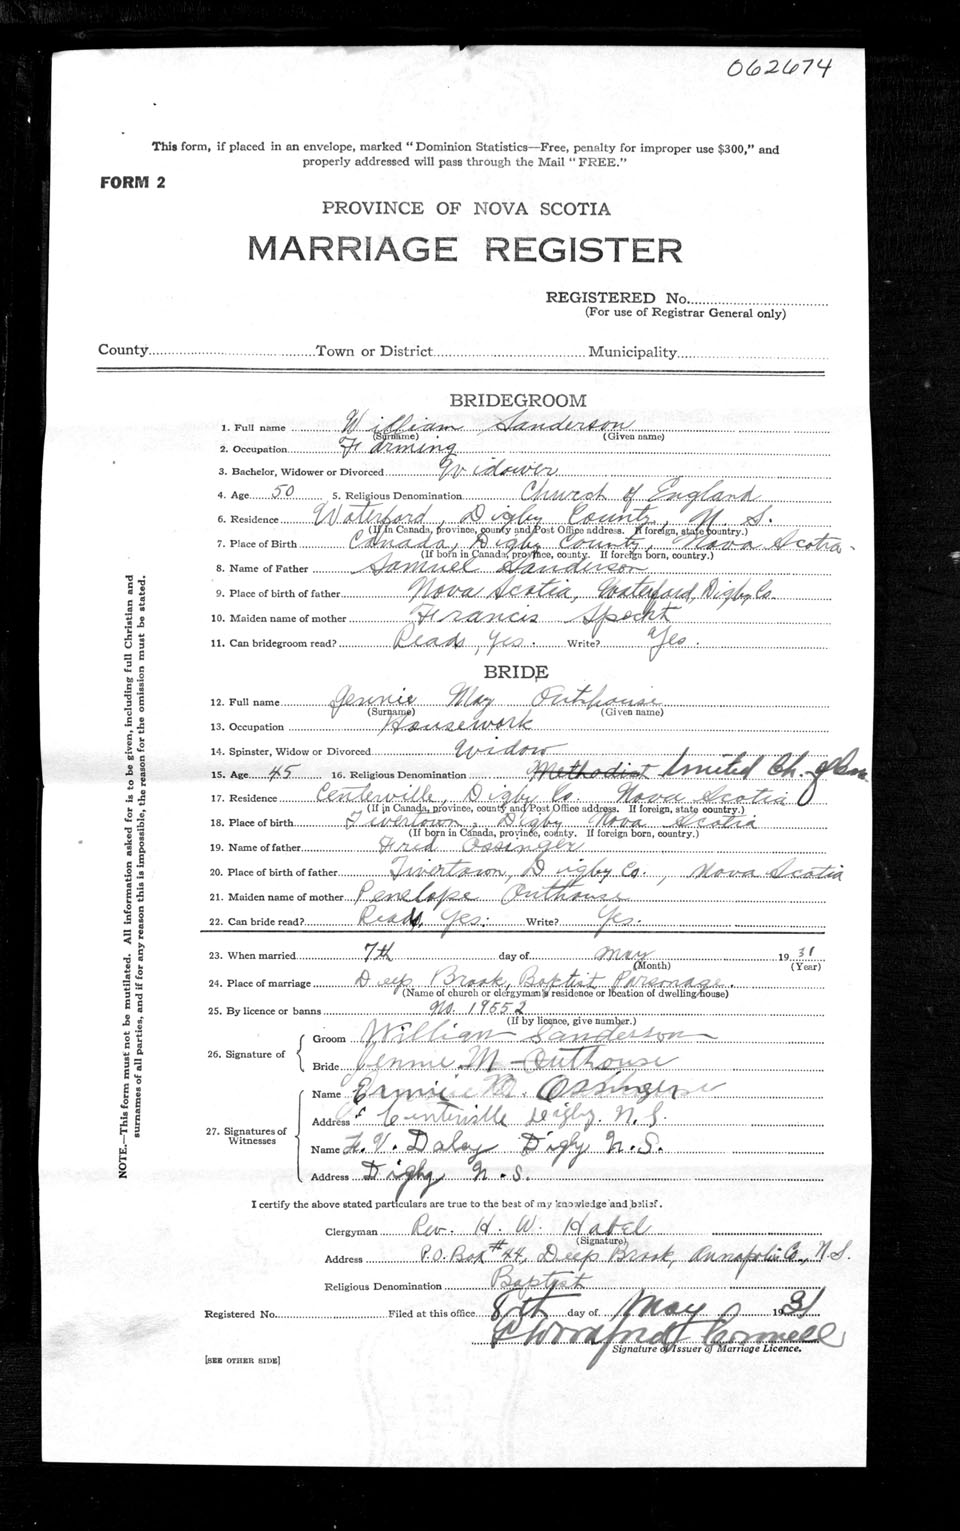 062674
This form, if placed in an envelope, marked "Dominion Statistics—Free, penalty for improper use $300," and
properly addressed will pass through the Mail "FREE."
FORM 2
PROVINCE OF NOVA SCOTIA
MARRIAGE REGISTER
REGISTERED No.
(For use of Registrar General only)
County Town or District Municipality
BRIDEGROOM
1. Full name William Sanderson
(Surname) (Given name)
2. Occupation Farming
3. Bachelor, Widower or Divorced Widower
4. Age 50 5. Religious Denomination Church of England
6. Residence Waterford, Digby County, N. S.
(If in Canada, province, county and Post Office address. If foreign, state country.)
7. Place of Birth Canada, Digby County, Nova Scotia.
(If born in Canada, province, county. If foreign born, country.)
8. Name of Father Samuel Sanderson
9. Place of birth of father Nova Scotia, Waterford, Digby Co.
10. Maiden name of mother Francis Specht
11. Can bridegroom read? Reads, yes. Write? Yes.
BRIDE
12. Full name Jennie May Outhouse
(Surname) (Given name)
13. Occupation Housework
14. Spinster, Widow or Divorced Widow
15. Age 45 16. Religious Denomination Methodist United Ch. of Can
17. Residence Centerville, Digby Co. Nova Scotia
(If in Canada, province, county and Post Office address. If foreign, state country.)
18. Place of birth Tivertown, Digby Nova Scotia
(If born in Canada, province, county. If foreign born, country.)
19. Name of father Fred Ossinger
20. Place of birth of father Tivertown, Digby Co., Nova Scotia
21. Maiden name of mother Penelope Outhouse
22. Can bride read? Reads, Yes. Write? Yes.
23. When married 7th day of May 1931
(Month) (Year)
24. Place of marriage Deep Brook, Baptist Parsonage.
(Name of church or clergyman's residence or location of dwelling house)
25. By licence or banns No. 19552
(If by licence, give number.)
26. Signature of Groom William Sanderson
Bride Jennie M Outhouse
27. Signatures of Witnesses
Name Ossinger
Address Centerville Digby. N.S.
Name Daley Digby N.S.
Address Digby N.S.
I certify the above stated particulars are true to the best of my knowledge and belief.
Clergyman Rev. H. W. Habel
(Signature)
Address P.O. Box #44, Deep Brook, Annapolis Co., N.S.
Religious Denomination Baptist
Registered No. Filed at this office 8th day of May 1931
Signature of Issuer of Marriage Licence.
[SEE OTHER SIDE]
NOTE.—This form must not be mutilated. All information asked for is to be given, including full Christian and
surnames of all parties, and if for any reason this is impossible, the reason for the omission must be stated.